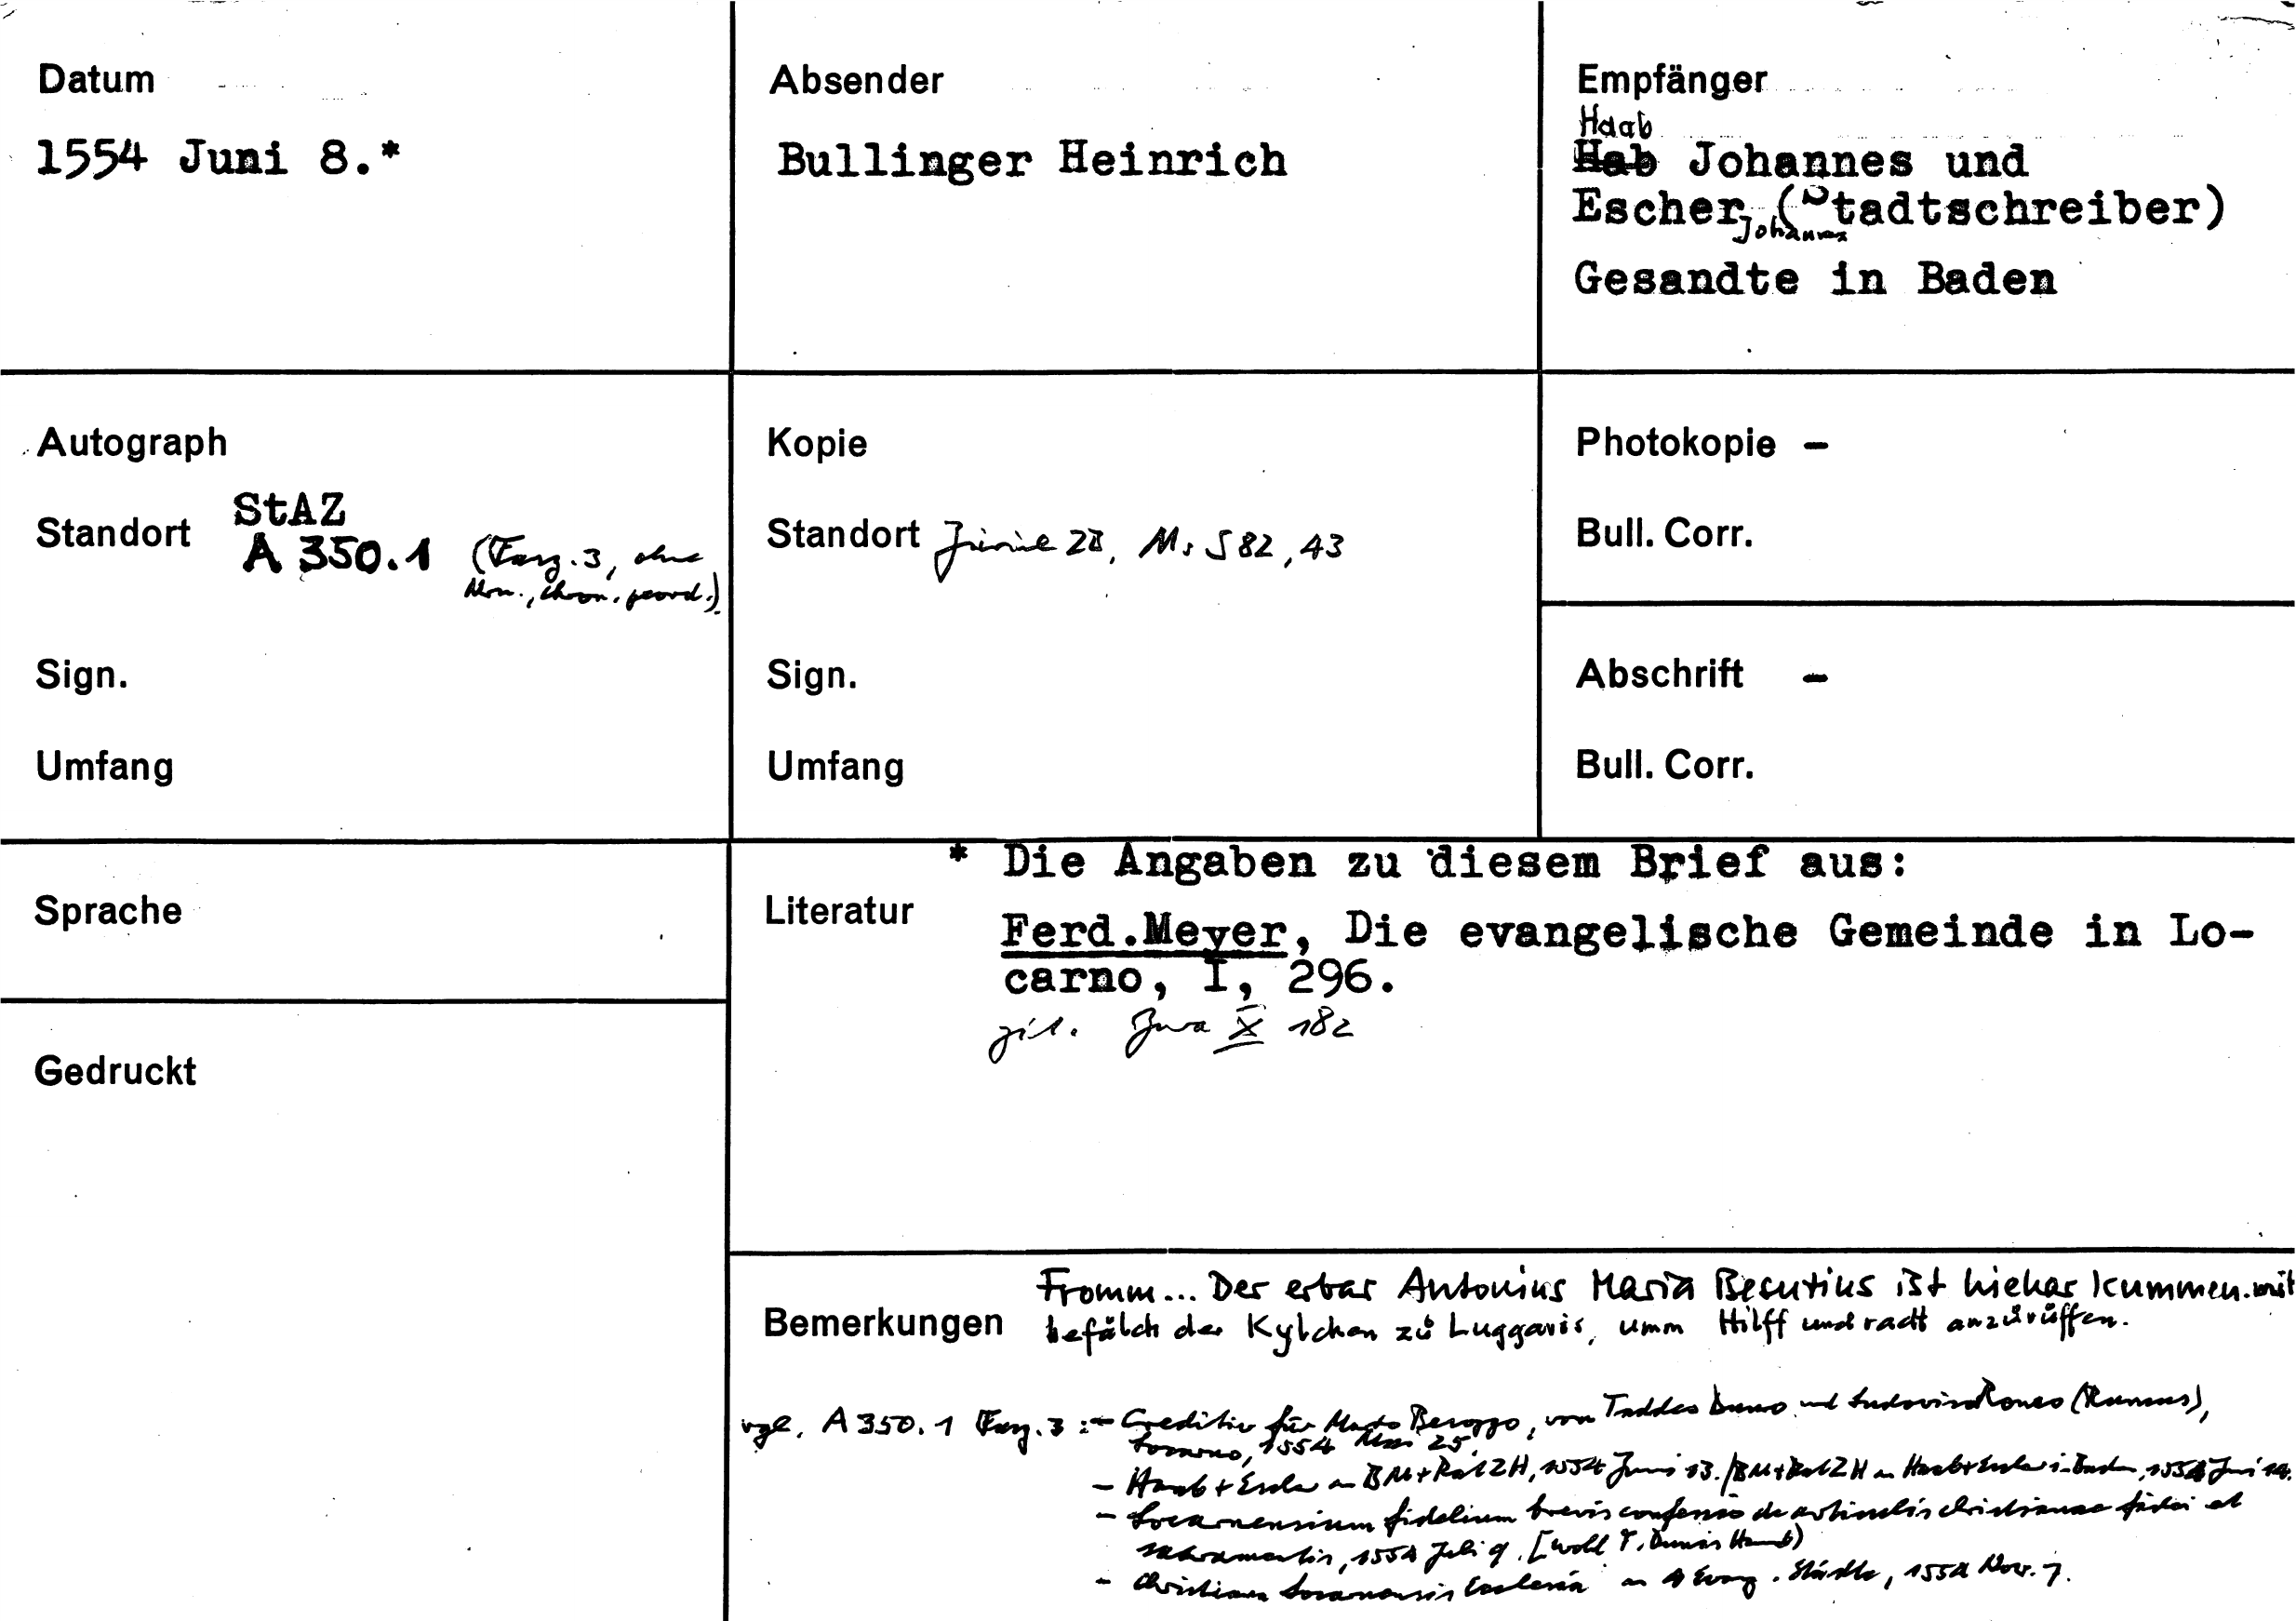 Datum
1554 Juni 8.*
Absender
Bullinger Heinrich
Empfänger
Haab
Hab Johannes und
Escher, (Stadtschreiber)
Johannes
Gesandte in Baden
Autograph
Standort StAZ
A 350.1 (Fasz. 3, ohne
Nrn., chron. geord.)
Sign.
Umfang
Kopie
Standort Zürich ZB, Ms S 82, 43
Sign.
Umfang
Photokopie –
Bull. Corr.
Abschrift –
Bull. Corr.
Sprache
Gedruckt
* Die Angaben zu diesem Brief aus:
Literatur
Ferd.Meyer, Die evangelische Gemeinde in Lo-
carno, I, 296.
zit. Zwa X 182
Bemerkungen
Fromm... Der erbar Antonius Maria Besutius ist hiehar kummen mit
befälch der Kylchen zů Luggaris, umm Hilff und radt anzůrüffen.
vgl. A 350.1 Fasz. 3 : – Creditiv für von Taddeo Duno und Ludovico Ronco (Runcus),
Locarno, 1554 Mai 25.
– Haab + Escher an BM + Rat ZH, 1554 Juni 13. / BM + Rat ZH an Haab + Escher in Baden, 1554 Juni 14.
– Locarnensium fidelium brevis confessio de articulis christianae fidei et
sacramentis, 1554 Juli 9. [wohl T. Dunos Hand)
– Christiana Locarnensis Ecclesia an 4 Evang. Städte, 1554 Nov. 7.